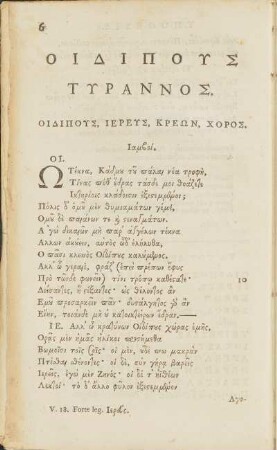 6
ΟΙΔΙΠΟΥΣ
ΤΥΡΑΝΝΟΣ.
ΟΙΔΙΠΟΥΣ, ΙΕΡΕΥΣ, ΚΡΕΩΝ, ΧΟΡΟΣ.
Ιαμβοι.
ΟΙ.
Ω Τέκνα, Κάδμου τοῦ πάλαι νέα τροφὴ,
Τίνας ποθ' ἕδρας τάσδε μοι θοάζετε
Ἱκτηρίοις κλάδοισιν ἐξεστεμμένοι;
Πόλις δ' ὁμοῦ μὲν θυμιαμάτων γέμει,
Ὁμοῦ δὲ παιάνων τε καὶ στεναγμάτων.
Ἁ 'γὼ δικαιῶν μὴ παρ' ἀγγέλων τέκνα
Ἄλλων ἀκούειν, αὐτὸς ὧδ' ἐλήλυθα,
Ὁ πᾶσι κλεινὸς Οἰδίπους καλούμενος.
Ἀλλ' ὦ γεραιὲ, φράζ' (ἐπεὶ πρέπων ἔφυς
Πρὸ τῶνδε φωνεῖν) τίνι τρόπῳ καθέστατε· 10
Δείσαντες, ἢ στέρξαντες, ὡς θέλοντος ἂν
Ἐμοῦ προσαρκεῖν πᾶν· δυσάλγητος γὰρ ἂν
Εἴην, τοιάνδε μὴ οὐ κατοικτείρων ἕδραν.
ΙΕ. Ἀλλ' ὦ κρατύνων Οἰδίπους χώρας ἐμῆς,
Ὁρᾷς μὲν ἡμᾶς ἡλίκοι προσήμεθα
Βωμοῖσι τοῖς σοῖς· οἱ μὲν, οὐδέπω μακρὰν
Πτέσθαι σθένοντες· οἱ δὲ, σὺν γήρᾳ βαρεῖς
Ἱερεῖς, ἐγὼ μὲν Ζηνός· οἱ δέ τ' ᾐθέων
Λεκτοί· τὸ δ' ἄλλο φῦλον ἐξεστεμμένον
V. 18. Forte leg. Ἱερεύς.